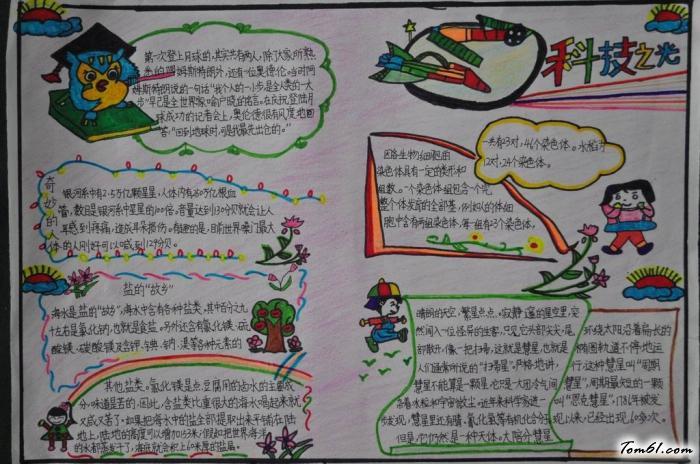 科技之光
第一次登上月球的,其实共有两人,除了大家所熟
悉的阿姆斯特朗外,还有一位奥德伦。当时阿
姆斯特朗说的一句话“我个人的一小步,是全人类的一大
步”早已是全世界家喻户晓的名言。在庆祝登陆月
球成功的记者会上,
答:“回到地球时,可是我最先出仓的。”
奇妙的人体
银河系中有2.5万亿颗星星,人体内有250万亿根血
管,数目是银河系中星星的100倍。音量达到130分贝就会让人
耳感到疼痛,造成耳朵损伤。有趣的是,目前世界嗓门最大
的人刚好可以喊到129分贝。
盐的“故乡”
海水是盐的“故乡”,海水中含有各种盐类。其中百分之九
十左右是氯化钠,也就是食盐。另外还含有氯化镁、硫
酸镁、碳酸镁及含钾、碘、钠、溴等各种元素的
其他盐类。氯化镁是点豆腐用的卤水的主要成
分,味道是苦的,因此,含盐类比重很大的海水喝起来就
又咸又苦了。如果把海水中的盐全部提取出来平铺在陆
地上,陆地的高度可以增加153米;假如把世界海洋
的水都蒸发干了,海底就会积上60米厚的盐层。
一共有23对,46个染色体。水稻为
12对,24个染色体。
染色体具有一定的类形和
组数。一个染色体组包含一个完
整个体发育的全部基,例如人的体细
胞中含有两组染色体,每一组有23个染色体,
晴朗的天空,繁星点点。
突然闯入一位怪异的生客,只见它头部尖尖,尾
部散开,像一把扫帚,这就是彗星,也就是
人们通常所说的“扫帚星”。严格地讲,
彗星不能算是一颗星,它只是一大团冷气间
杂着冰粒和宇宙微尘。近年来科学家进一
步发现,彗星里还有磷、氰化氢等有机化合物
但是,它仍然是一种天体。大部分彗星
环绕大阳沿着扁长的
椭圆轨道不停地运
行。这种彗星叫“周期
彗星”。周期最短的一颗
叫“恩克彗星”,1786年被发
现以来,已经出现60多次。
Tom61.com